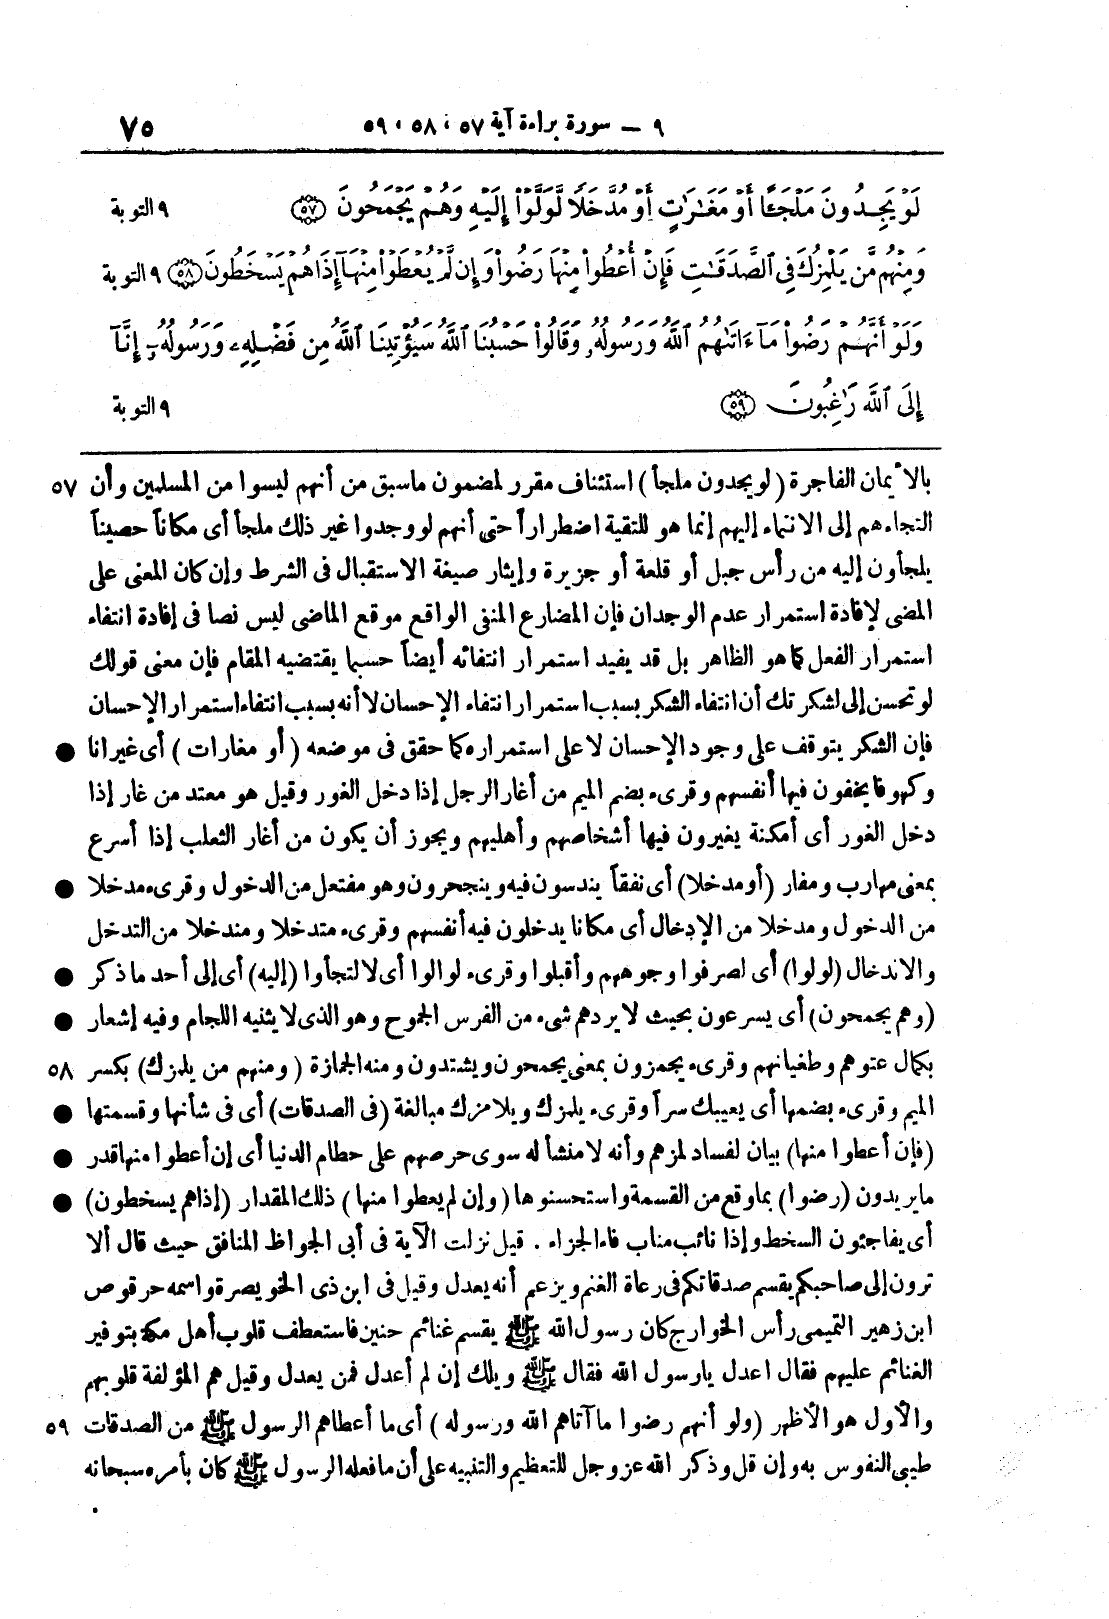 ٩ – سورة براءة آية ٥٧ ، ٥٨ ، ٥٩
٧٥
لَوْ يَجِدُونَ مَلْجَـًٔا أَوْ مَغَٰرَٰتٍ أَوْ مُدَّخَلًا لَّوَلَّوْا۟ إِلَيْهِ وَهُمْ يَجْمَحُونَ ﴿٥٧﴾ ٩ التوبة
وَمِنْهُم مَّن يَلْمِزُكَ فِى ٱلصَّدَقَٰتِ فَإِنْ أُعْطُوا۟ مِنْهَا رَضُوا۟ وَإِن لَّمْ يُعْطَوْا۟ مِنْهَآ إِذَا هُمْ يَسْخَطُونَ ﴿٥٨﴾ ٩ التوبة
وَلَوْ أَنَّهُمْ رَضُوا۟ مَآ ءَاتَىٰهُمُ ٱللَّهُ وَرَسُولُهُۥ وَقَالُوا۟ حَسْبُنَا ٱللَّهُ سَيُؤْتِينَا ٱللَّهُ مِن فَضْلِهِۦ وَرَسُولُهُۥٓ إِنَّآ
إِلَى ٱللَّهِ رَٰغِبُونَ ﴿٥٩﴾ ٩ التوبة
بالأيمان الفاجرة (لو يجدون ملجأ) استئناف مقرر لمضمون ماسبق من أنهم ليسوا من المسلمين وأن ٥٧
التجاءهم إلى الانتماء إليهم إنما هو للتقية اضطراراً حتى أنهم لو وجدوا غير ذلك ملجأ أى مكاناً حصيناً
يلجأون إليه من رأس جبل أو قلعة أو جزيرة وإيثار صيغة الاستقبال فى الشرط وإن كان المعنى على
المضى لإفادة استمرار عدم الوجدان فإن المضارع المنفى الواقع موقع الماضى ليس نصا فى إفادة انتفاء
استمرار الفعل كما هو الظاهر بل قد يفيد استمرار انتفائه أيضاً حسبما يقتضيه المقام فإن معنى قولك
لو تحسن إلى لشكرتك أن انتفاء الشكر بسبب استمرار انتفاء الإحسان لا أنه بسبب انتفاء استمرار الإحسان
فإن الشكر يتوقف على وجود الإحسان لا على استمراره كما حقق فى موضعه (أو مغارات) أى غيرانا ●
وكهوفا يخفون فيها أنفسهم وقرىء بضم الميم من أغار الرجل إذا دخل الغور وقيل هو معتد من غار إذا
دخل الغور أى أمكنة يغيرون فيها أشخاصهم وأهليهم ويجوز أن يكون من أغار الثعلب إذا أسرع
بمعنى مهارب ومفار (أو مدخلا) أى نفقاً يندسون فيه وينجحرون وهو مفتعل من الدخول وقرىء مدخلا ●
من الدخول ومدخلا من الإدخال أى مكانا يدخلون فيه أنفسهم وقرىء متدخلا ومندخلا من التدخل
والاندخال (لولوا) أى لصرفوا وجوههم وأقبلوا وقرىء لوالوا أى لالتجأوا (إليه) أى إلى أحد ماذكر ●
(وهم يجمحون) أى يسرعون بحيث لا يردهم شىء من الفرس الجموح وهو الذى لا يثنيه اللجام وفيه إشعار ●
بكمال عتوهم وطغيانهم وقرىء يجمزون بمعنى يجمحون ويشتدون ومنه الجمازة (ومنهم من يلمزك) بكسر ٥٨
الميم وقرىء بضمها أى يعيبك سراً وقرىء يلمزك ويلامزك مبالغة (فى الصدقات) أى فى شأنها وقسمتها ●
(فإن أعطوا منها) بيان لفساد لمزهم وأنه لا منشأ له سوى حرصهم على حطام الدنيا أى إن أعطوا منها قدر ●
مايريدون (رضوا) بما وقع من القسمة واستحسنوها (وإن لم يعطوا منها) ذلك المقدار (إذا هم يسخطون) ●
أى يفاجئون السخط وإذا نائب مناب فاء الجزاء . قيل نزلت الآية فى أبى الجواظ المنافق حيث قال ألا
ترون إلى صاحبكم يقسم صدقاتكم فى رعاة الغنم ويزعم أنه يعدل وقيل فى ابن ذى الخويصرة واسمه حرقوص
ابن زهير التميمى رأس الخوارج كان رسول الله ﷺ يقسم غنائم حنين فاستعطف قلوب أهل مكة بتوفير
الغنائم عليهم فقال اعدل يارسول الله فقال ﷺ ويلك إن لم أعدل فمن يعدل وقيل هم المؤلفة قلوبهم
والأول هو الأظهر (ولو أنهم رضوا ما آتاهم الله ورسوله) أى ما أعطاهم الرسول ﷺ من الصدقات ٥٩
طيبى النفوس به وإن قل وذكر الله عز وجل للتعظيم والتنبيه على أن مافعله الرسول ﷺ كان بأمره سبحانه